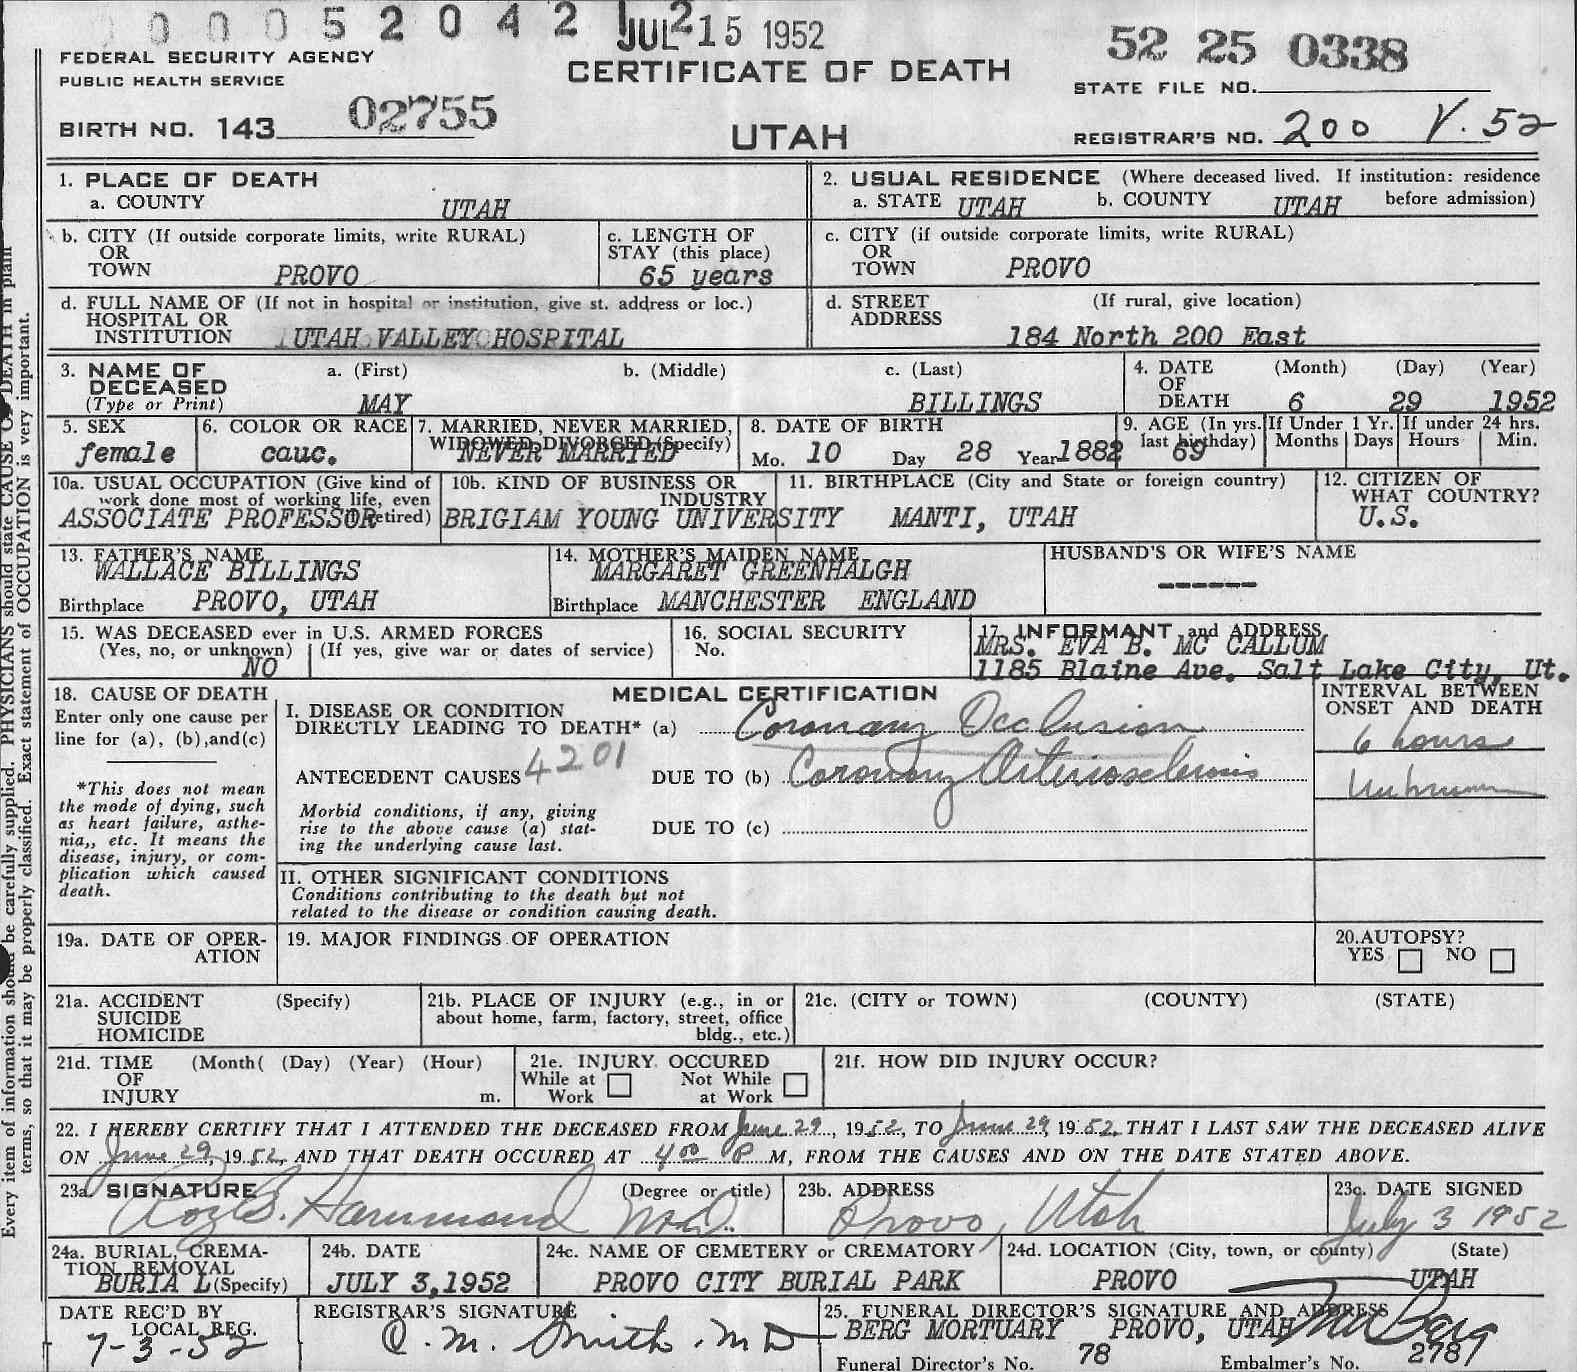 00052042 JUL 2 15 1952
52 25 0338
FEDERAL SECURITY AGENCY
PUBLIC HEALTH SERVICE
CERTIFICATE OF DEATH
STATE FILE NO.
BIRTH NO. 143 02755
UTAH
REGISTRAR'S NO. 200 V. 52
1. PLACE OF DEATH
a. COUNTY UTAH
2. USUAL RESIDENCE (Where deceased lived. If institution: residence before admission)
a. STATE UTAH b. COUNTY UTAH
b. CITY (If outside corporate limits, write RURAL)
OR
TOWN PROVO
c. LENGTH OF
STAY (this place)
65 years
c. CITY (if outside corporate limits, write RURAL)
OR
TOWN PROVO
d. FULL NAME OF (If not in hospital or institution, give st. address or loc.)
HOSPITAL OR
INSTITUTION UTAH VALLEY HOSPITAL
d. STREET (If rural, give location)
ADDRESS
184 North 200 East
3. NAME OF DECEASED
(Type or Print)
a. (First) b. (Middle) c. (Last)
MAY BILLINGS
4. DATE OF DEATH
(Month) (Day) (Year)
6 29 1952
5. SEX
female
6. COLOR OR RACE
cauc.
7. MARRIED, NEVER MARRIED,
WIDOWED, DIVORCED (Specify)
NEVER MARRIED
8. DATE OF BIRTH
Mo. 10 Day 28 Year 1882
9. AGE (In yrs. last birthday)
69
If Under 1 Yr.
Months Days
If under 24 hrs.
Hours Min.
10a. USUAL OCCUPATION (Give kind of
work done most of working life, even
ASSOCIATE PROFESSOR retired)
10b. KIND OF BUSINESS OR
INDUSTRY
BRIGIAM YOUNG UNIVERSITY
11. BIRTHPLACE (City and State or foreign country)
MANTI, UTAH
12. CITIZEN OF
WHAT COUNTRY?
U.S.
13. FATHER'S NAME
WALLACE BILLINGS
Birthplace PROVO, UTAH
14. MOTHER'S MAIDEN NAME
MARGARET GREENHALGH
Birthplace MANCHESTER ENGLAND
HUSBAND'S OR WIFE'S NAME
------
15. WAS DECEASED ever in U.S. ARMED FORCES
(Yes, no, or unknown) (If yes, give war or dates of service)
NO
16. SOCIAL SECURITY
No.
17. INFORMANT and ADDRESS
MRS. EVA B. MC CALLUM
1185 Blaine Ave. Salt Lake City, Ut.
18. CAUSE OF DEATH
Enter only one cause per
line for (a), (b), and (c)
*This does not mean
the mode of dying, such
as heart failure, asthe-
nia,, etc. It means the
disease, injury, or com-
plication which caused
death.
MEDICAL CERTIFICATION
I. DISEASE OR CONDITION
DIRECTLY LEADING TO DEATH* (a) Coronary Occlusion
ANTECEDENT CAUSES 4201 DUE TO (b) Coronary Arteriosclerosis
Morbid conditions, if any, giving
rise to the above cause (a) stat-
ing the underlying cause last.
DUE TO (c)
INTERVAL BETWEEN
ONSET AND DEATH
6 hours
Unknown
II. OTHER SIGNIFICANT CONDITIONS
Conditions contributing to the death but not
related to the disease or condition causing death.
19a. DATE OF OPER-
ATION
19. MAJOR FINDINGS OF OPERATION
20. AUTOPSY?
YES NO
21a. ACCIDENT (Specify)
SUICIDE
HOMICIDE
21b. PLACE OF INJURY (e.g., in or
about home, farm, factory, street, office
bldg., etc.)
21c. (CITY or TOWN) (COUNTY) (STATE)
21d. TIME (Month( (Day) (Year) (Hour)
OF
INJURY m.
21e. INJURY OCCURED
While at Work Not While at Work
21f. HOW DID INJURY OCCUR?
22. I HEREBY CERTIFY THAT I ATTENDED THE DECEASED FROM June 29, 1952, TO June 29, 1952, THAT I LAST SAW THE DECEASED ALIVE
ON June 29, 1952, AND THAT DEATH OCCURED AT 4 00 P M, FROM THE CAUSES AND ON THE DATE STATED ABOVE.
23a. SIGNATURE (Degree or title)
Roy B. Hammond M.D.
23b. ADDRESS
Provo, Utah
23c. DATE SIGNED
July 3 1952
24a. BURIAL, CREMA-
TION REMOVAL
BURIAL (Specify)
24b. DATE
JULY 3, 1952
24c. NAME OF CEMETERY or CREMATORY
PROVO CITY BURIAL PARK
24d. LOCATION (City, town, or county) (State)
PROVO UTAH
DATE REC'D BY
LOCAL REG.
7-3-52
REGISTRAR'S SIGNATURE
C. M. Smith. MD
25. FUNERAL DIRECTOR'S SIGNATURE AND ADDRESS
BERG MORTUARY PROVO, UTAH
Funeral Director's No. 78 Embalmer's No. 2787
Every item of information should be carefully supplied. PHYSICIANS should state CAUSE OF DEATH in plain
terms, so that it may be properly classified. Exact statement of OCCUPATION is very important.